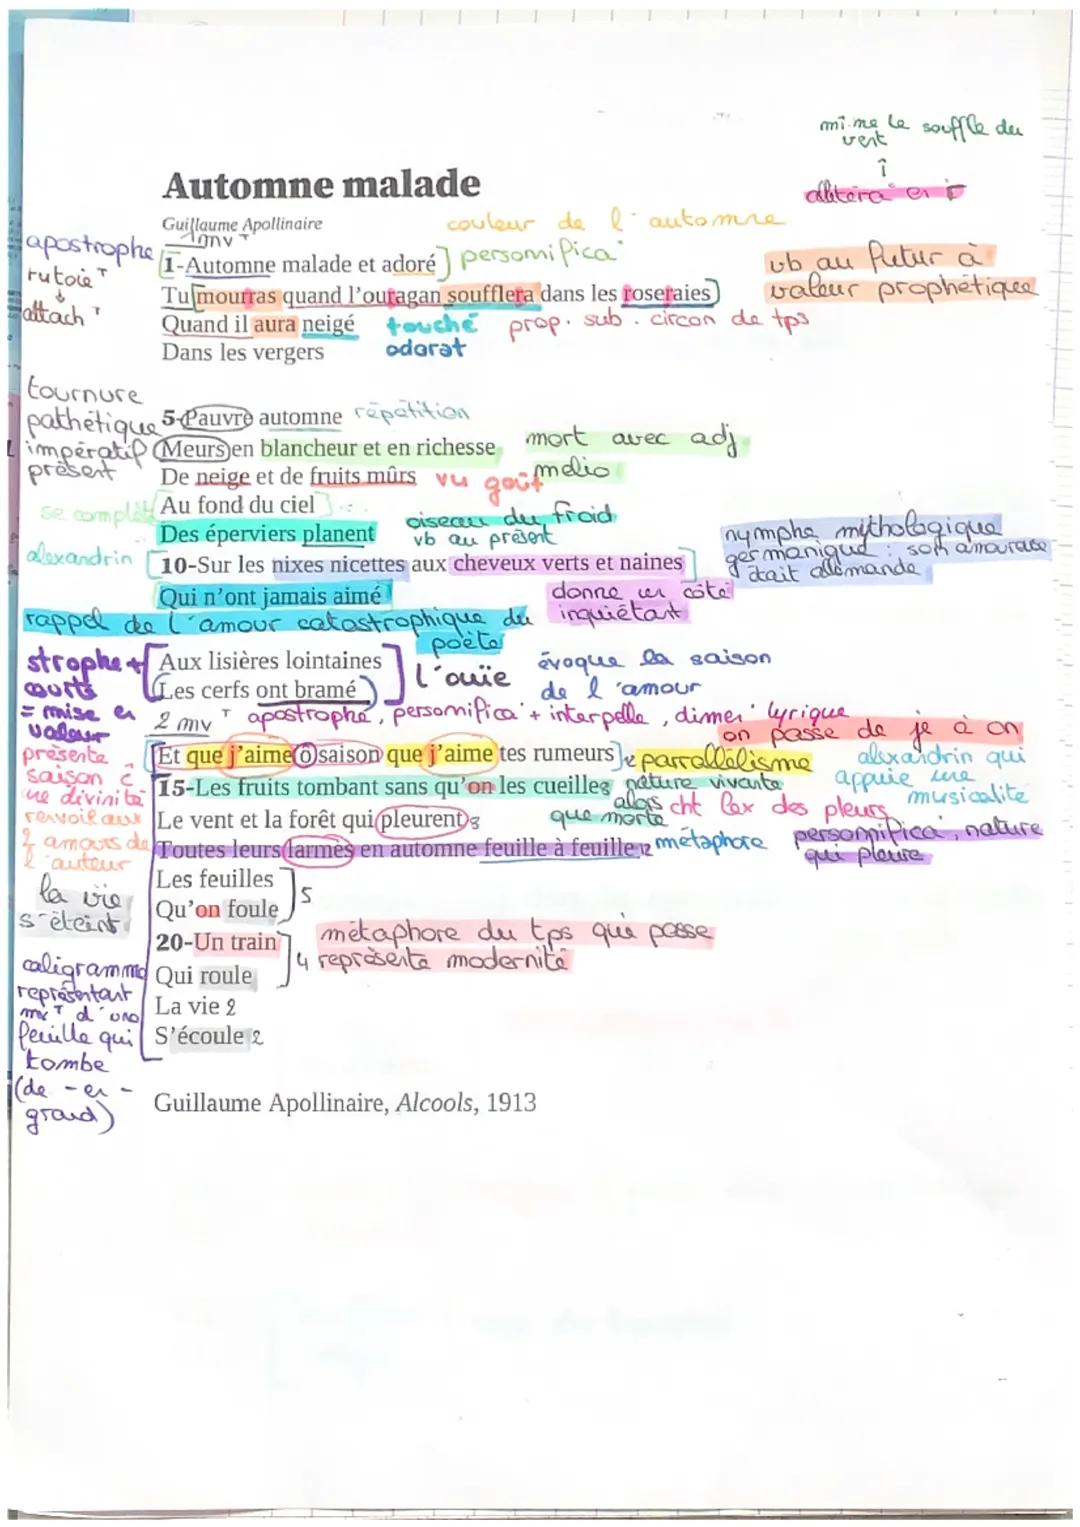 mime le souffle du
vent
Automne malade
allitéra° en r
Guillaume Apollinaire
couleur de l'automne
1mvᵀ
apostrophe
1-Automne malade et adoré
personnifica°
vb au futur à
tutoieᵀ
Tu mourras quand l'ouragan soufflera dans les roseraies
valeur prophétique
attachᵀ
Quand il aura neigé
touché
prop. sub. circon de tps
Dans les vergers
odorat
tournure
pathétique
5-Pauvre automne
répétition
impératif
présent
Meurs en blancheur et en richesse
mort avec adj
mélio
De neige et de fruits mûrs
vu
goût
se complèt
Au fond du ciel
Des éperviers planent
oiseau du froid
vb au présent
nymphe mythologique
germanique : son amoureuse
était allemande
alexandrin
10-Sur les nixes nicettes aux cheveux verts et naines
Qui n'ont jamais aimé
donne un côté
inquiétant
rappel de l'amour catastrophique du
poète
strophe +
courte
= mise en
valeur
Aux lisières lointaines
Les cerfs ont bramé
l'ouïe
évoque la saison
de l'amour
2 mvᵀ
apostrophe, personnifica° + interpelle, dimen° lyrique
on passe de je à on
présente
saison c
une divinité
renvoie aux
2 amours de
l'auteur
Et que j'aime ô saison que j'aime tes rumeurs
parrallélisme
alexandrin qui
appuie une
musicalité
15-Les fruits tombant sans qu'on les cueille
nature vivante
alors
que morte
Le vent et la forêt qui pleurent
cht lex des pleurs
Toutes leurs larmes en automne feuille à feuille
métaphore
personnifica°, nature
qui pleure
la vie
s'éteint
Les feuilles
Qu'on foule
5
20-Un train
Qui roule
4
métaphore du tps qui passe
représente modernité
caligramme
représentant
mvᵀ d'une
feuille qui
tombe
(de - en -
grand)
La vie 2
S'écoule 2
Guillaume Apollinaire, Alcools, 1913